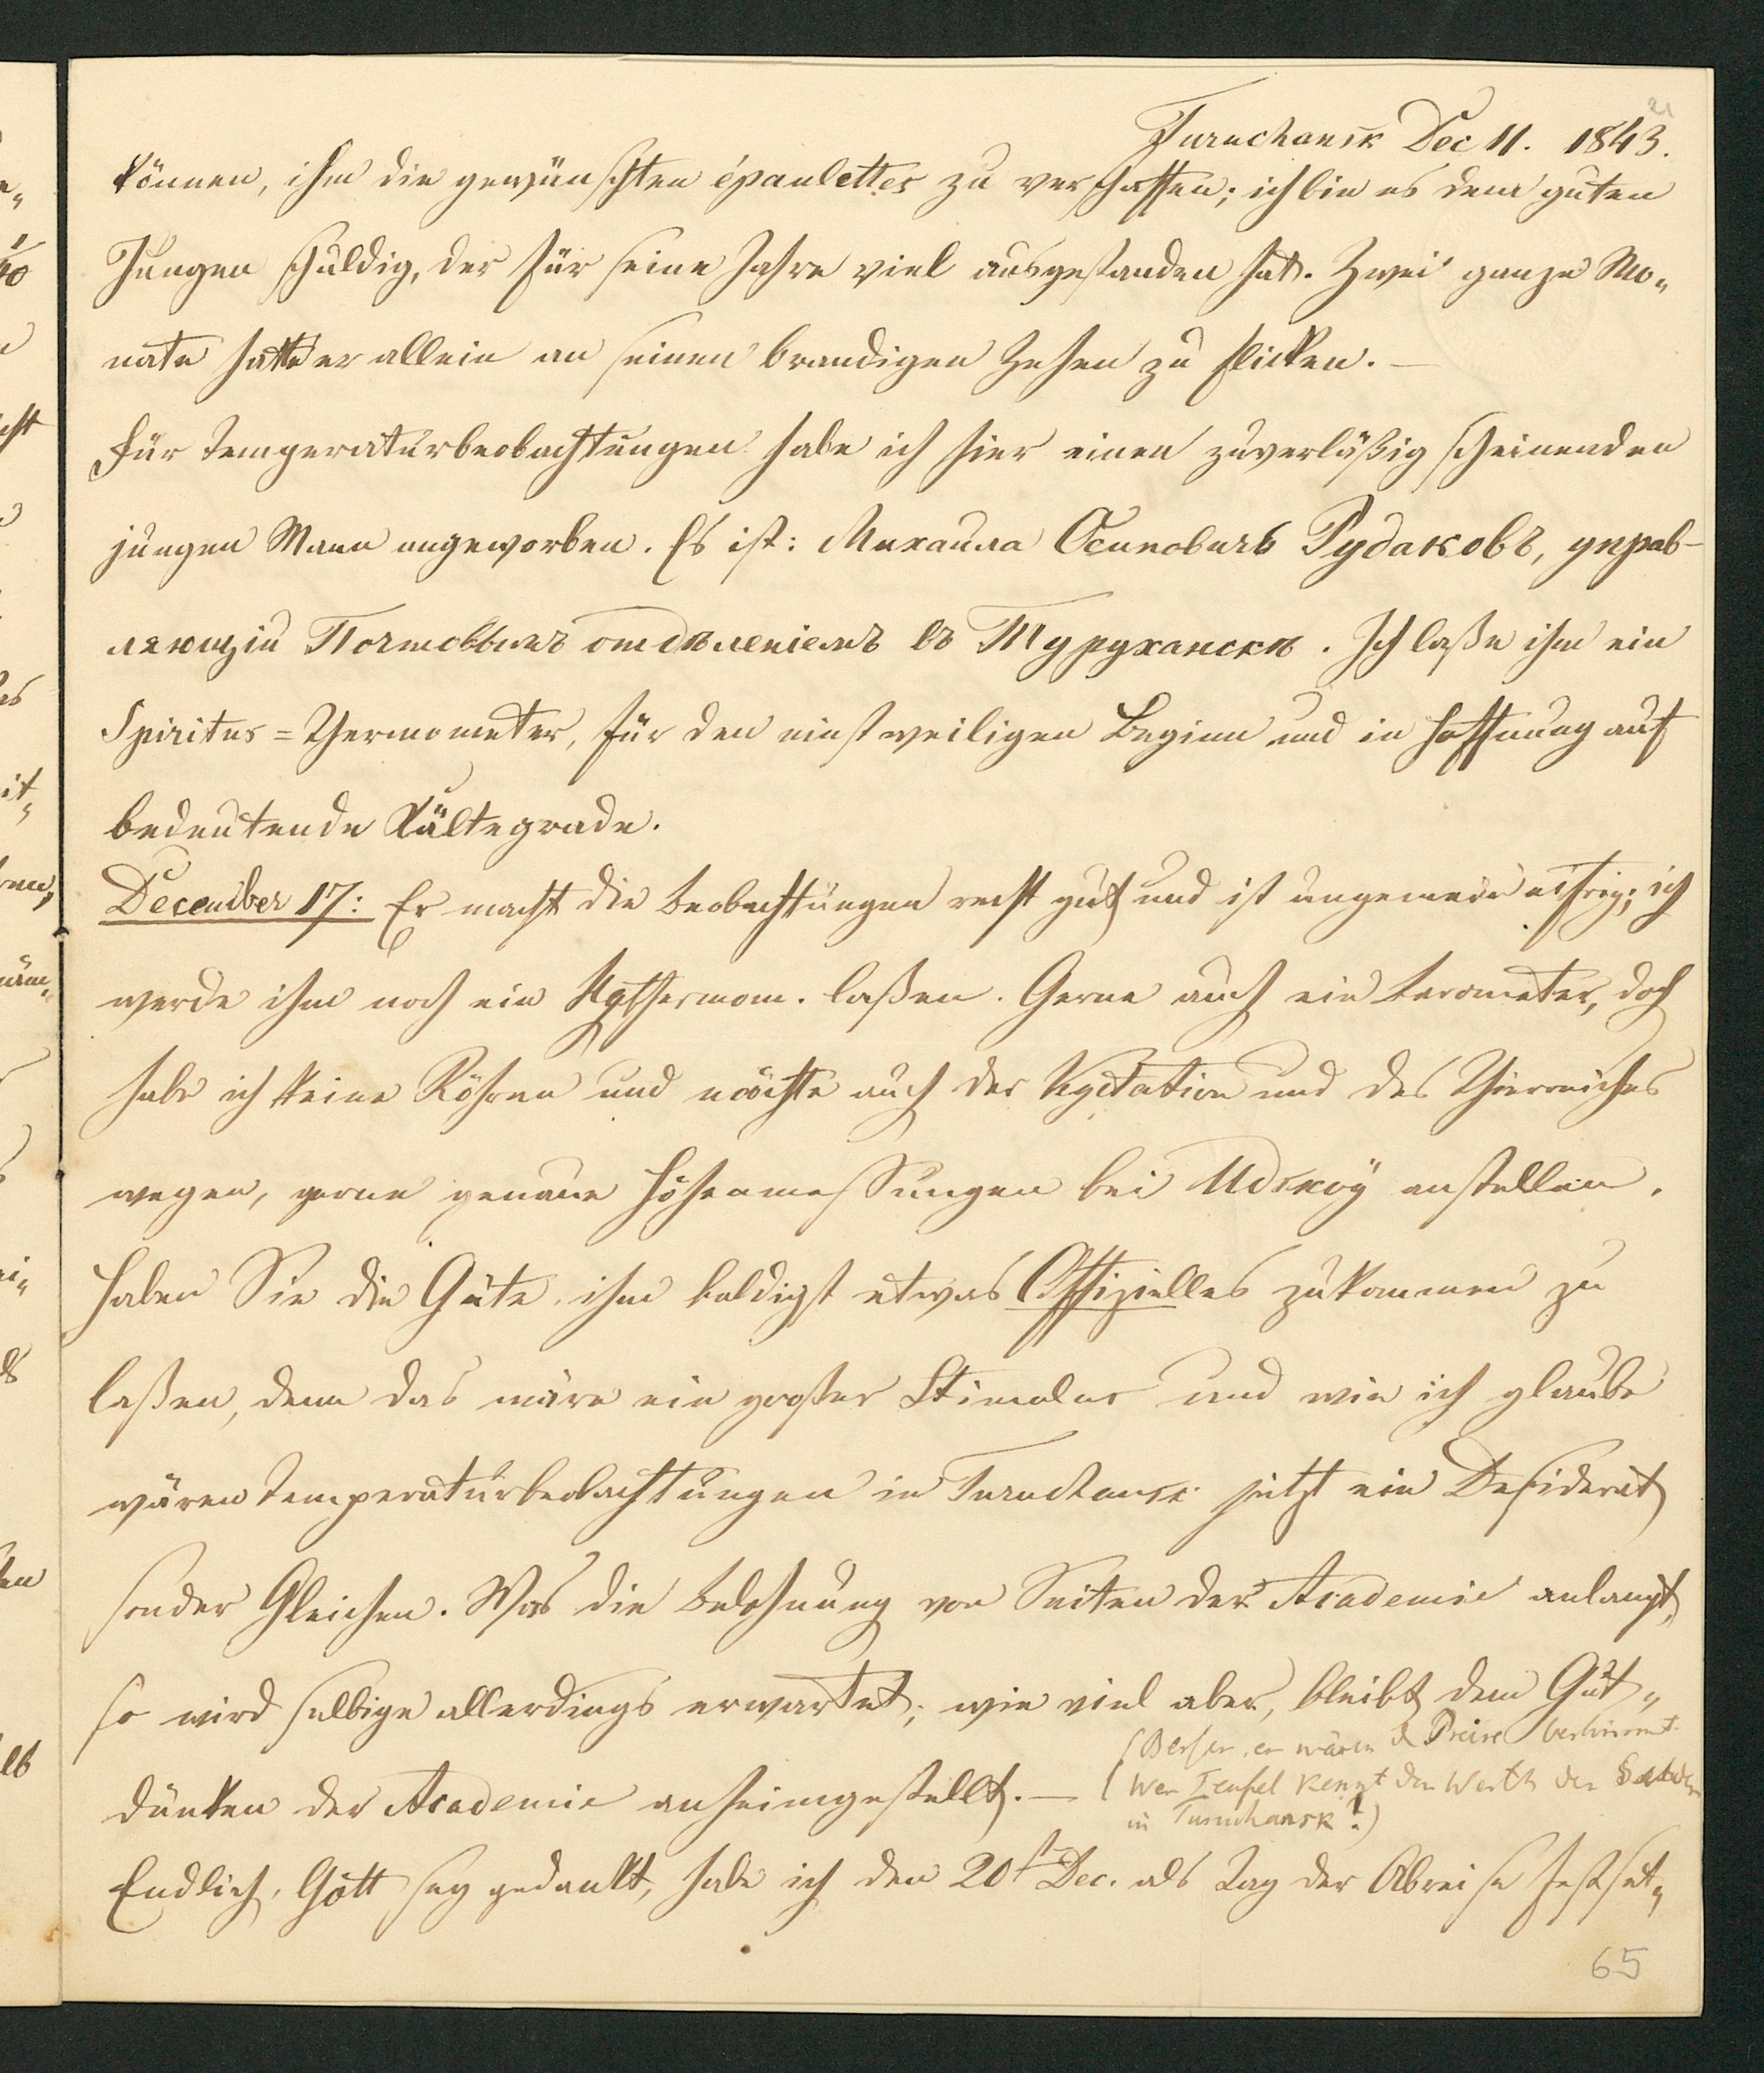 21
Turuchansk Dec 11. 1843.
können, ihm die gewünschten épaulettes zu verschaffen; ich bin es dem guten
Jungen schuldig, der für seine Jahre viel ausgestanden hat. Zwei ganze Mo„
nate hatte er allein an seinen brandigen Zehen zu flicken. —
Für Temperaturbeobachtungen habe ich hier einen zuverläßig scheinenden
jungen Mann angeworben. Es ist: Михаила Осиповичь Рудаковъ, управ-
ляющiй Почтовымъ отдѣленiемъ въ Туруханскѣ. Ich laße ihm ein
Spiritus=Thermometer, für den einstweiligen Beginn und in Hoffnung auf
bedeutende Kältegrade.
December 17: Er macht die Beobachtungen recht gut und ist ungemein eifrig; ich
werde ihm noch ein Hgthermom. laßen. Gerne auch ein Barometer, doch
habe ich keine Röhren und möchte auch der Vegetation und des Thierreiches
wegen, gerne genaue Höhenmessungen bei Udskoÿ anstellen.
Haben Sie die Güte, ihm baldigst etwas Offizielles zukommen zu
laßen, denn das wäre ein großer Stimulus und wie ich glaube
wären Temperaturbeobachtungen in Turuchansk jetzt ein Desiderat
sonder Gleichen. Was die Belohnung von Seiten der Academie anlangt,
so wird selbige allerdings erwartet; wie viel aber, bleibt dem Gut„
dünken der Academie anheimgestellt. —
(Besser, er wären d Preise bestimmt.
Wer Teufel kennt den Werth der
in Turuchansk!)
Endlich, Gott sey gedankt, habe ich den 20st Dec. als Tag der Abreise festset„
65